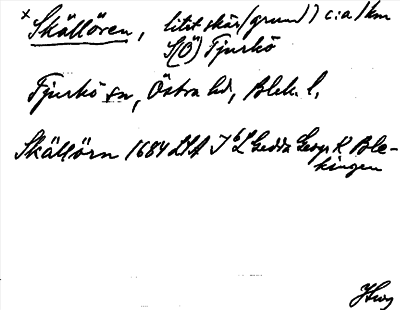 x Skällören, litet skär (grund?) c:a 1 km
S(Ö) Tjurkö
Tjurkö sn, Östra hd, Blek. l.
Skällörn 1684 LSA I 6 L Gedda Geogr K Ble-
kingen